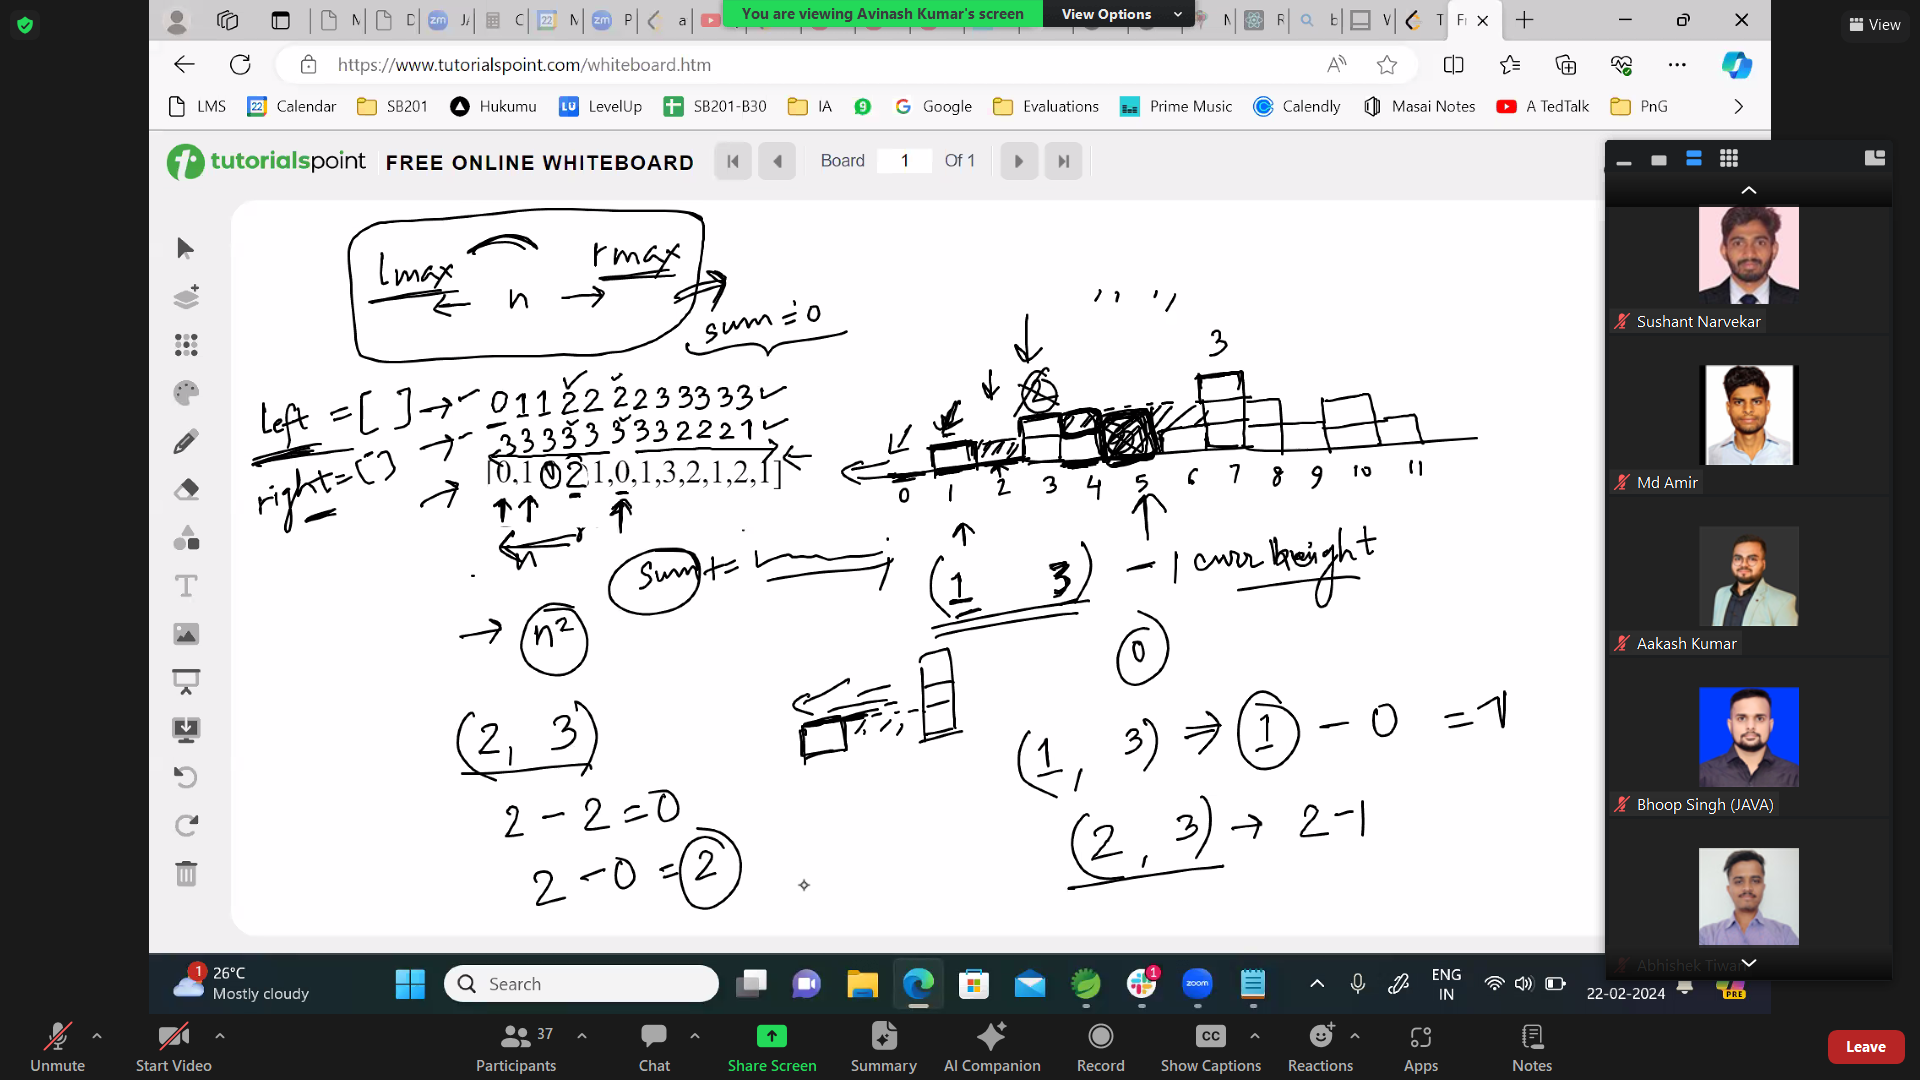 You are viewing Avinash Kumar's screen View Options
View
https://www.tutorialspoint.com/whiteboard.htm
LMS Calendar SB201 Hukumu LevelUp SB201-B30 IA Google Evaluations Prime Music Calendly Masai Notes A TedTalk PnG
tutorialspoint FREE ONLINE WHITEBOARD Board 1 Of 1
lmax n rmax
sum = 0
3
left = [ ] → 0 1 1 2 2 2 2 3 3 3 3 3
3 3 3 3 3 3 3 3 2 2 2 1
right = [ ]
[0,1,0,2,1,0,1,3,2,1,2,1]
0 1 2 3 4 5 6 7 8 9 10 11
n
sum +=
(1 3) - 1 curr height
→ n²
0
(2, 3)
(1, 3) ⇒ 1 - 0 = 1
2 - 2 = 0
(2, 3) → 2 - 1
2 - 0 = 2
Sushant Narvekar
Md Amir
Aakash Kumar
Bhoop Singh (JAVA)
Abhishek Tiwari
1 26°C
Mostly cloudy
Search
zoom
ENG
IN
22-02-2024
PRE
Unmute Start Video Participants 37 Chat Share Screen Summary AI Companion Record Show Captions Reactions Apps Notes Leave